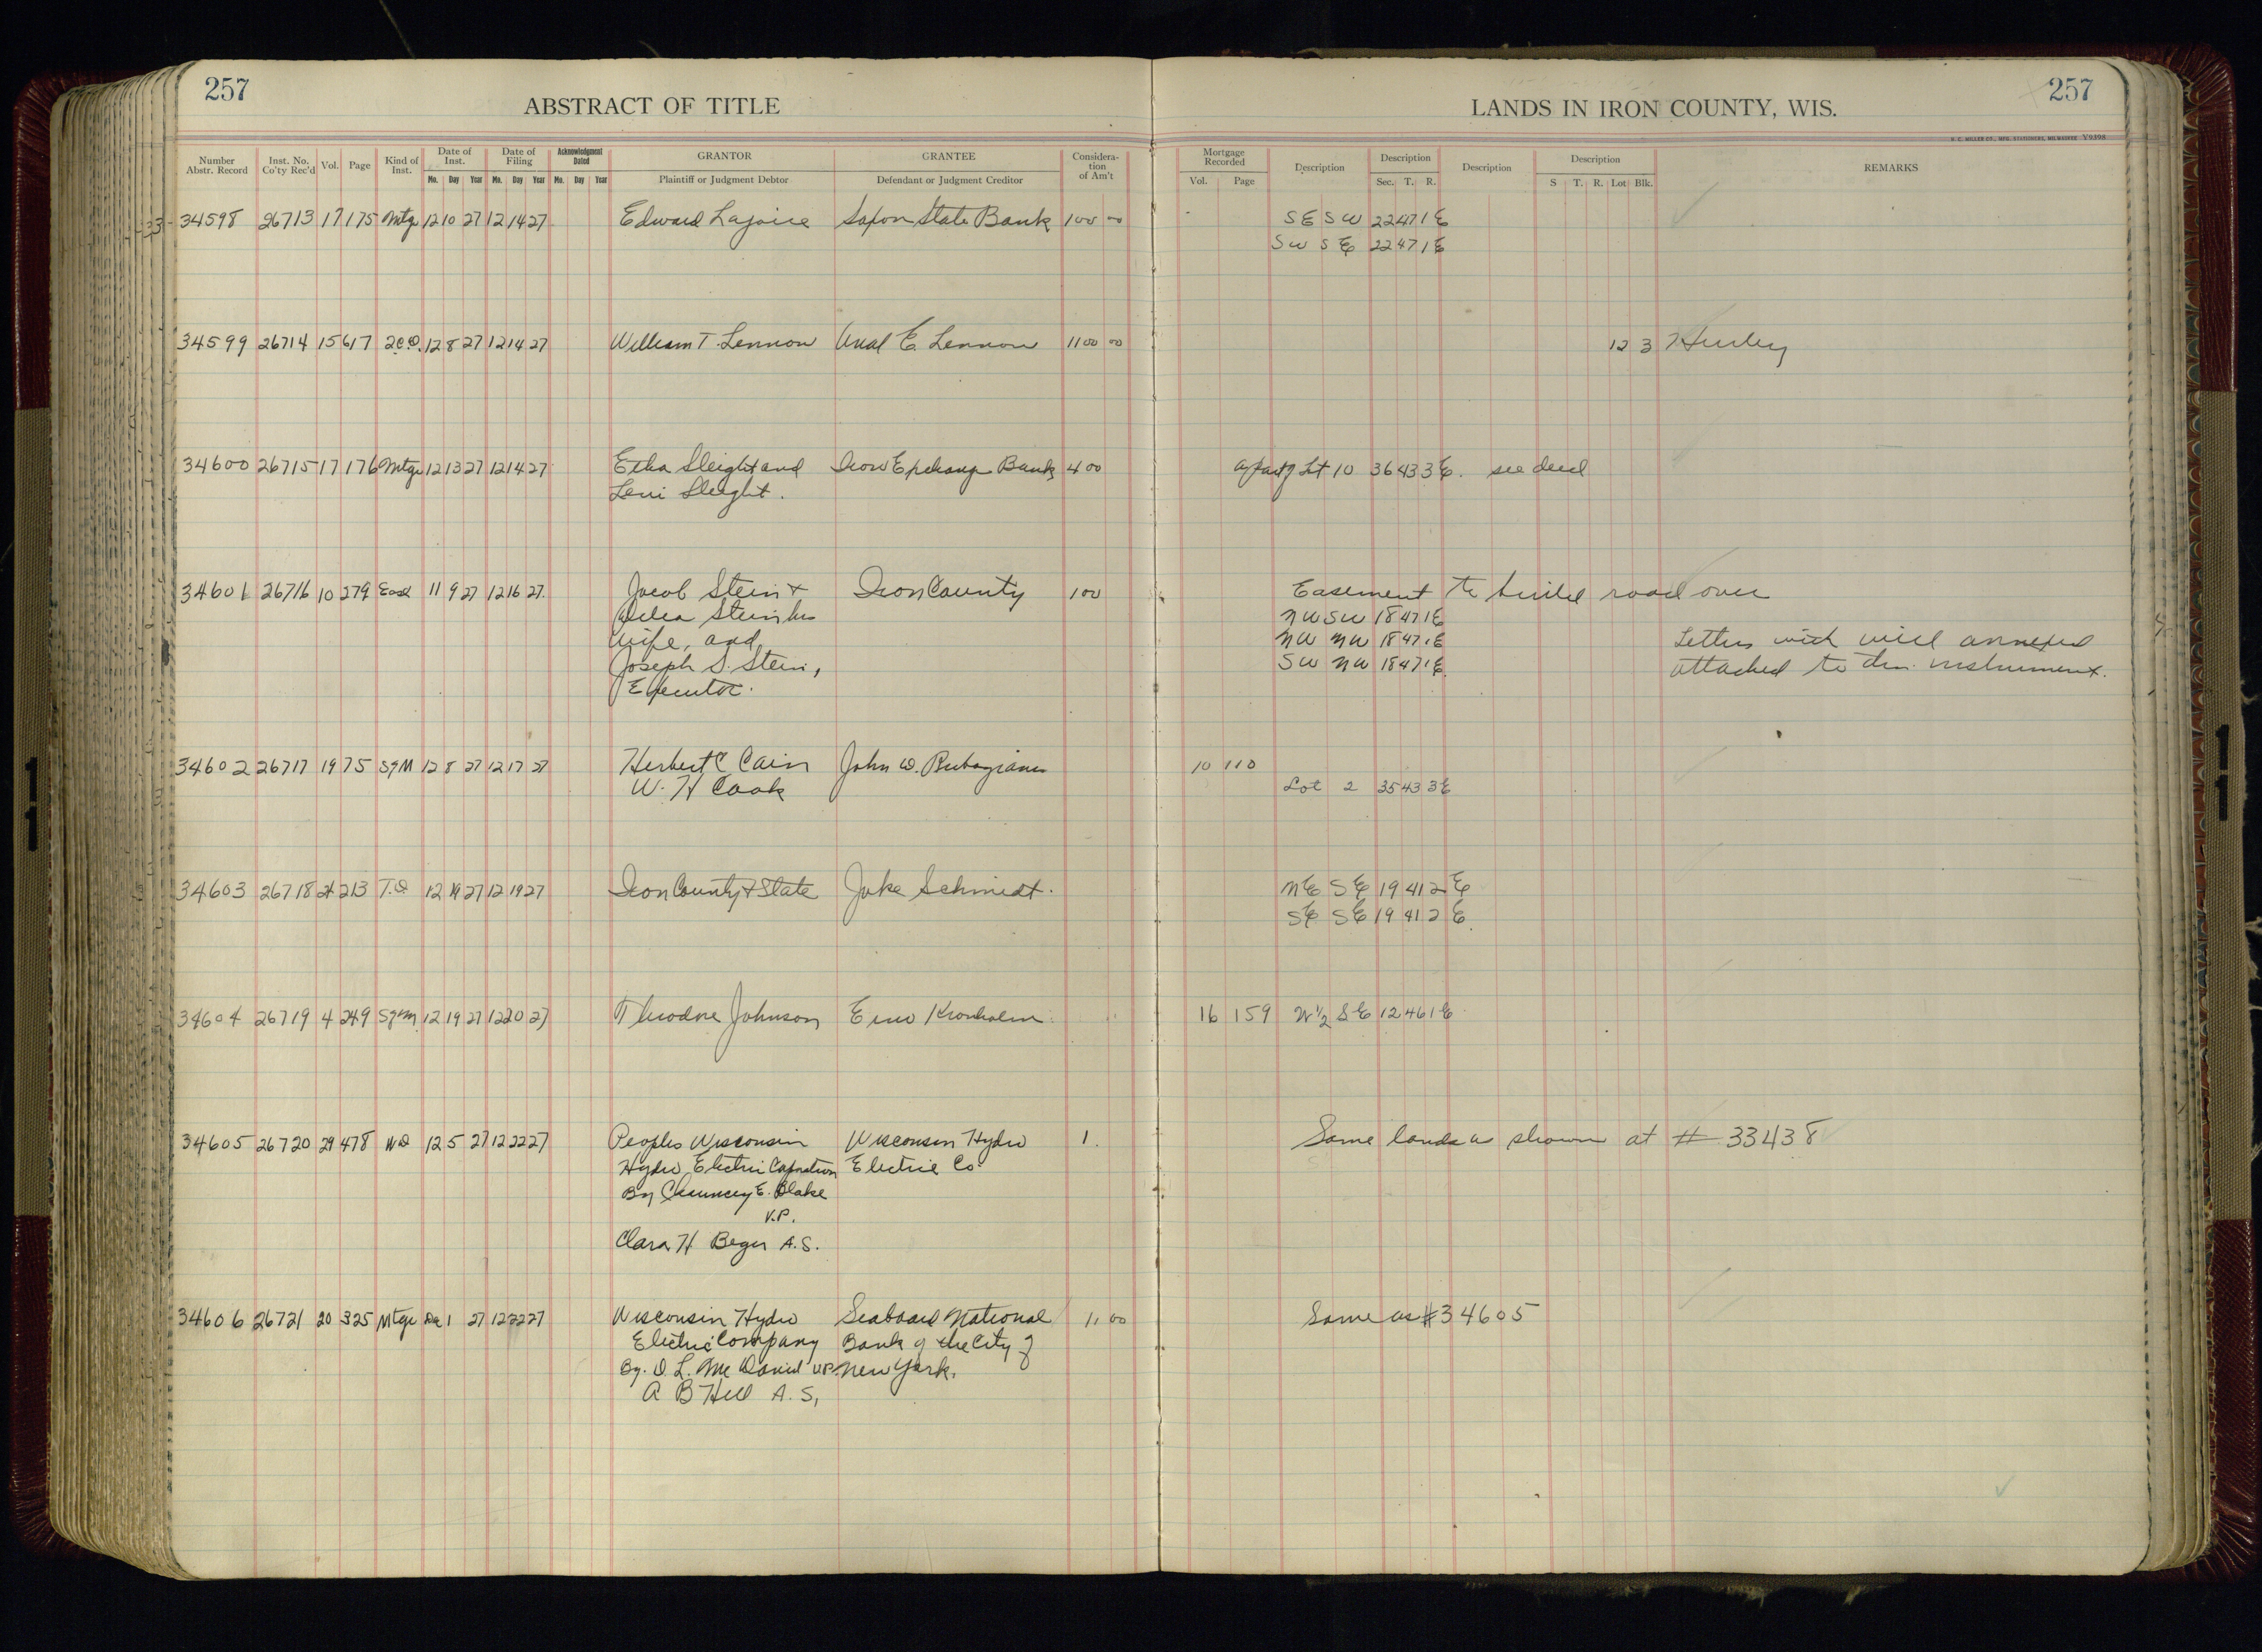 257
ABSTRACT OF TITLE
LANDS IN IRON COUNTY, WIS.
257
H. C. MILLER CO., MFG. STATIONERS, MILWAUKEE Y9398
Number Abstr. Record Inst. No. Co'ty Rec'd Vol. Page Kind of Inst. Date of Inst. Mo. Day Year Date of Filing Mo. Day Year Acknowledgment Dated Mo. Day Year GRANTOR Plaintiff or Judgment Debtor GRANTEE Defendant or Judgment Creditor Consideration of Am't Mortgage Recorded Vol. Page Description Description Sec. T. R. Description Description S T. R. Lot Blk. REMARKS
34598 26713 17 175 Mtge 12 10 27 12 14 27 Edward Lajoice Saxon State Bank 100 00 SE SW 22 47 1 E
SW SE 22 47 1 E
34599 26714 15 617 2 C.D. 12 8 27 12 14 27 William T. Lennon E Lennon 1100 00 12 3 Hurley
34600 26715 17 176 Mtge 12 13 27 12 14 27 Sleight and Iron Exchange Bank 400 a part of Lt 10 36 43 3 E. see deed
Levi Sleight.
34601 26716 10 279 Ease 11 9 27 12 16 27 Jacob Stein & Iron County 100 Easement to build road over
Stein his NW SW 18 47 1 E
wife, and NW NW 18 47 1 E Letters with will annexed
Joseph S. Stein, SW NW 18 47 1 E attached to this instrument.
Executor.
34602 26717 19 75 SgM 12 8 27 12 17 27 Herbert C Cain John W. 10 110
W. H Cook Lot 2 35 43 3 E
34603 26718 21 213 T.D. 12 19 27 12 19 27 Iron County & State Jake Schmidt. NE SE 19 41 2 E
SE SE 19 41 2 E
34604 26719 4 249 Sgm 12 19 27 12 20 27 Theodore Johnson Kronholm 16 159 W 1/2 SE 12 46 1 E
34605 26720 29 478 WD 12 5 27 12 22 27 Peoples Wisconsin Wisconsin Hydro 1. Same lands as shown at # 33438
Hydro Electric Corporation Electric Co.
By Chauncey E. Blake
V.P.
Clara H Beger A.S.
34606 26721 20 325 Mtge Dec 1 27 12 22 27 Wisconsin Hydro Seaboard National 1. 00 Same as # 34605
Electric Company Bank of the City of
By. D. L. McDaniel V.P. New York.
A B Hill A. S.